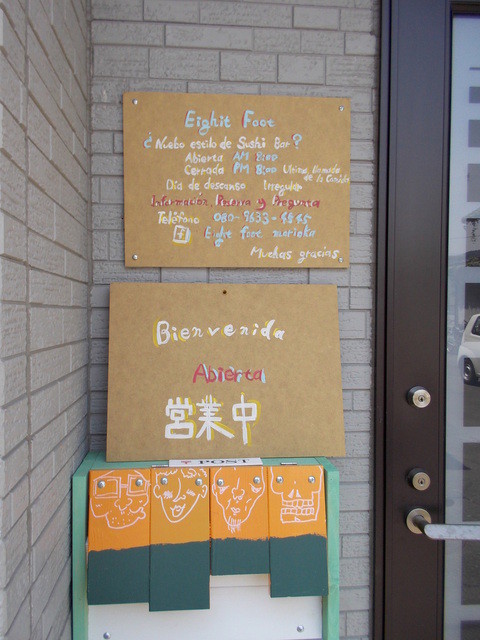 Eighit Foot
¿Nuebo estilo de Sushi Bar?
Abierta AM 8:00
Cerrada PM 8:00 Ultima llamada de la Comida
Dia de descanso Irregular
Información, Reserva y Pregunta
Teléfono 080-9633-4545
f Eight foot morioka
Muchas gracias.
Bienvenida
Abierta
営業中
〒 POST